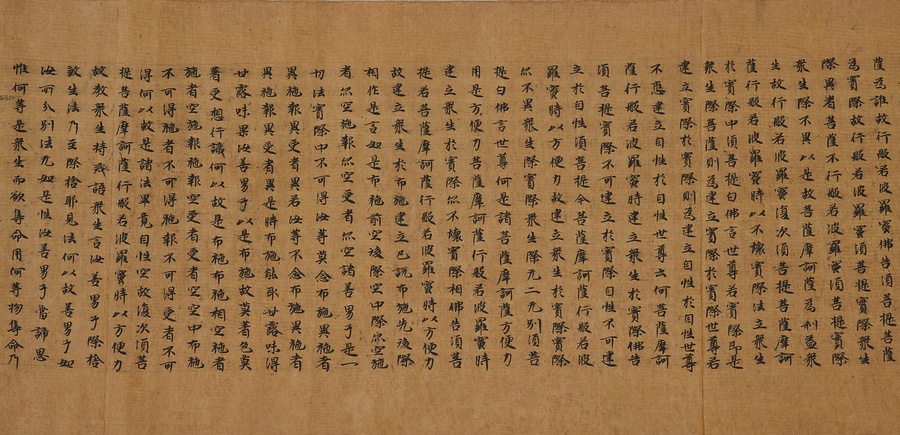 薩為誰故行般若波羅蜜佛告須菩提菩薩
為實際故行般若波羅蜜須菩提實際衆生
際異者菩薩不行般若波羅蜜須菩提實際
衆生際不異以是故菩薩摩訶薩為利益衆
生故行般若波羅蜜復次須菩提菩薩摩訶
薩行般若波羅蜜時以不壞實際法立衆生
於實際中須菩提白佛言世尊若實際即是
衆生際菩薩則為建立實際於實際世尊若
建立實際於實際則為建立自性於自性世尊
不應建立自性於自性世尊云何菩薩摩訶
薩行般若波羅蜜時建立衆生於實際佛告
須菩提實際不可建立於實際自性不可建
立於自性須菩提今菩薩摩訶薩行般若波
羅蜜時以方便力故建立衆生於實際實際
亦不異衆生際實際衆生際无二无別須菩
提白佛言世尊何是諸菩薩摩訶薩方便力
用是方便力菩薩摩訶薩行般若波羅蜜時
建立衆生於實際亦不壞實際相佛告須菩
提若菩薩摩訶薩行般若波羅蜜時以方便力
故建立衆生於布施建立已說布施先後際
相作是言如是布施前空後際空中際亦空施
者亦空施報亦空受者亦空諸善男子是一
切法實際中不可得汝等莫念布施異施者
異施報異受者異若汝等不念布施異施者
異施報異受者異是時布施能取甘露味得
甘露味果汝善男子以是布施故莫著色莫
著受想行識何以故是布施布施相空施
施者空施報施報空受者受者空空中布施
不可得施者不可得施報不可得受者不可
得何以故是諸法畢竟自性空故復次須菩
提菩薩摩訶薩行般若波羅蜜時以方便力
故教衆生持戒語衆生言汝善男子除捨
殺生法乃至除捨邪見法何以故善男子如
汝所分別法无如是性汝善男子當諦思
惟何等是衆生而欲奪命用何等物奪命乃